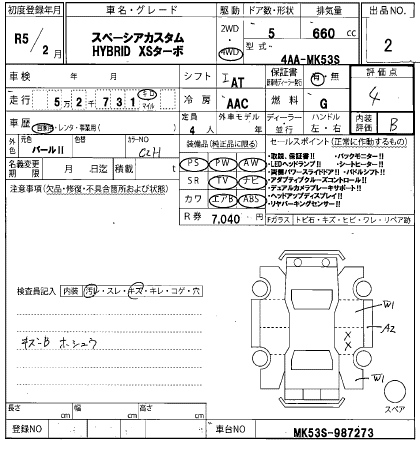 初度登録年月
車名・グレード
駆動
ドア数・形状
排気量
出品NO.
R5/2月
スペーシアカスタム
HYBRID XSターボ
2WD・4WD
5
660 cc
型式
4AA-MK53S
2
車検 年 月
シフト IAT
保証書 有・無
評価点
走行 5万2千731 キロ マイル
冷房 AAC
燃料 G
4
車歴 自家用・レンタ・事業用( )
定員 4人
外車モデル
ディーラー・並行
ハンドル 左・右
内装評価 B
外色 元色 パールII
色替
カラーNO ZLH
装備品(純正品に限る)
セールスポイント(正常に作動するもの)
名義変更期限 月 日迄
積載 t
PS PW AW
SR TV ナビ
カワ エアB ABS
・取説、保証書!! ・バックモニター!!
・LEDヘッドランプ!! ・シートヒーター!!
・両側パワースライドドア!! ・パドルシフト!!
・アダプティブクルーズコントロール!!
・デュアルカメラブレーキサポート!!
・ヘッドアップディスプレイ!!
・リヤパーキングセンサー!!
注意事項(欠品・修復・不具合箇所および状態)
R券 7,040円
Fガラス トビ石・キズ・ヒビ・ワレ・リペア跡
検査員記入 内装 汚レ・スレ・キズ・キレ・コゲ・穴
キズ・B ホシュウ
W1
A2
X
X
W1
スペア
長さ cm
幅 cm
高さ cm
登録NO
車台NO
MK53S-987273